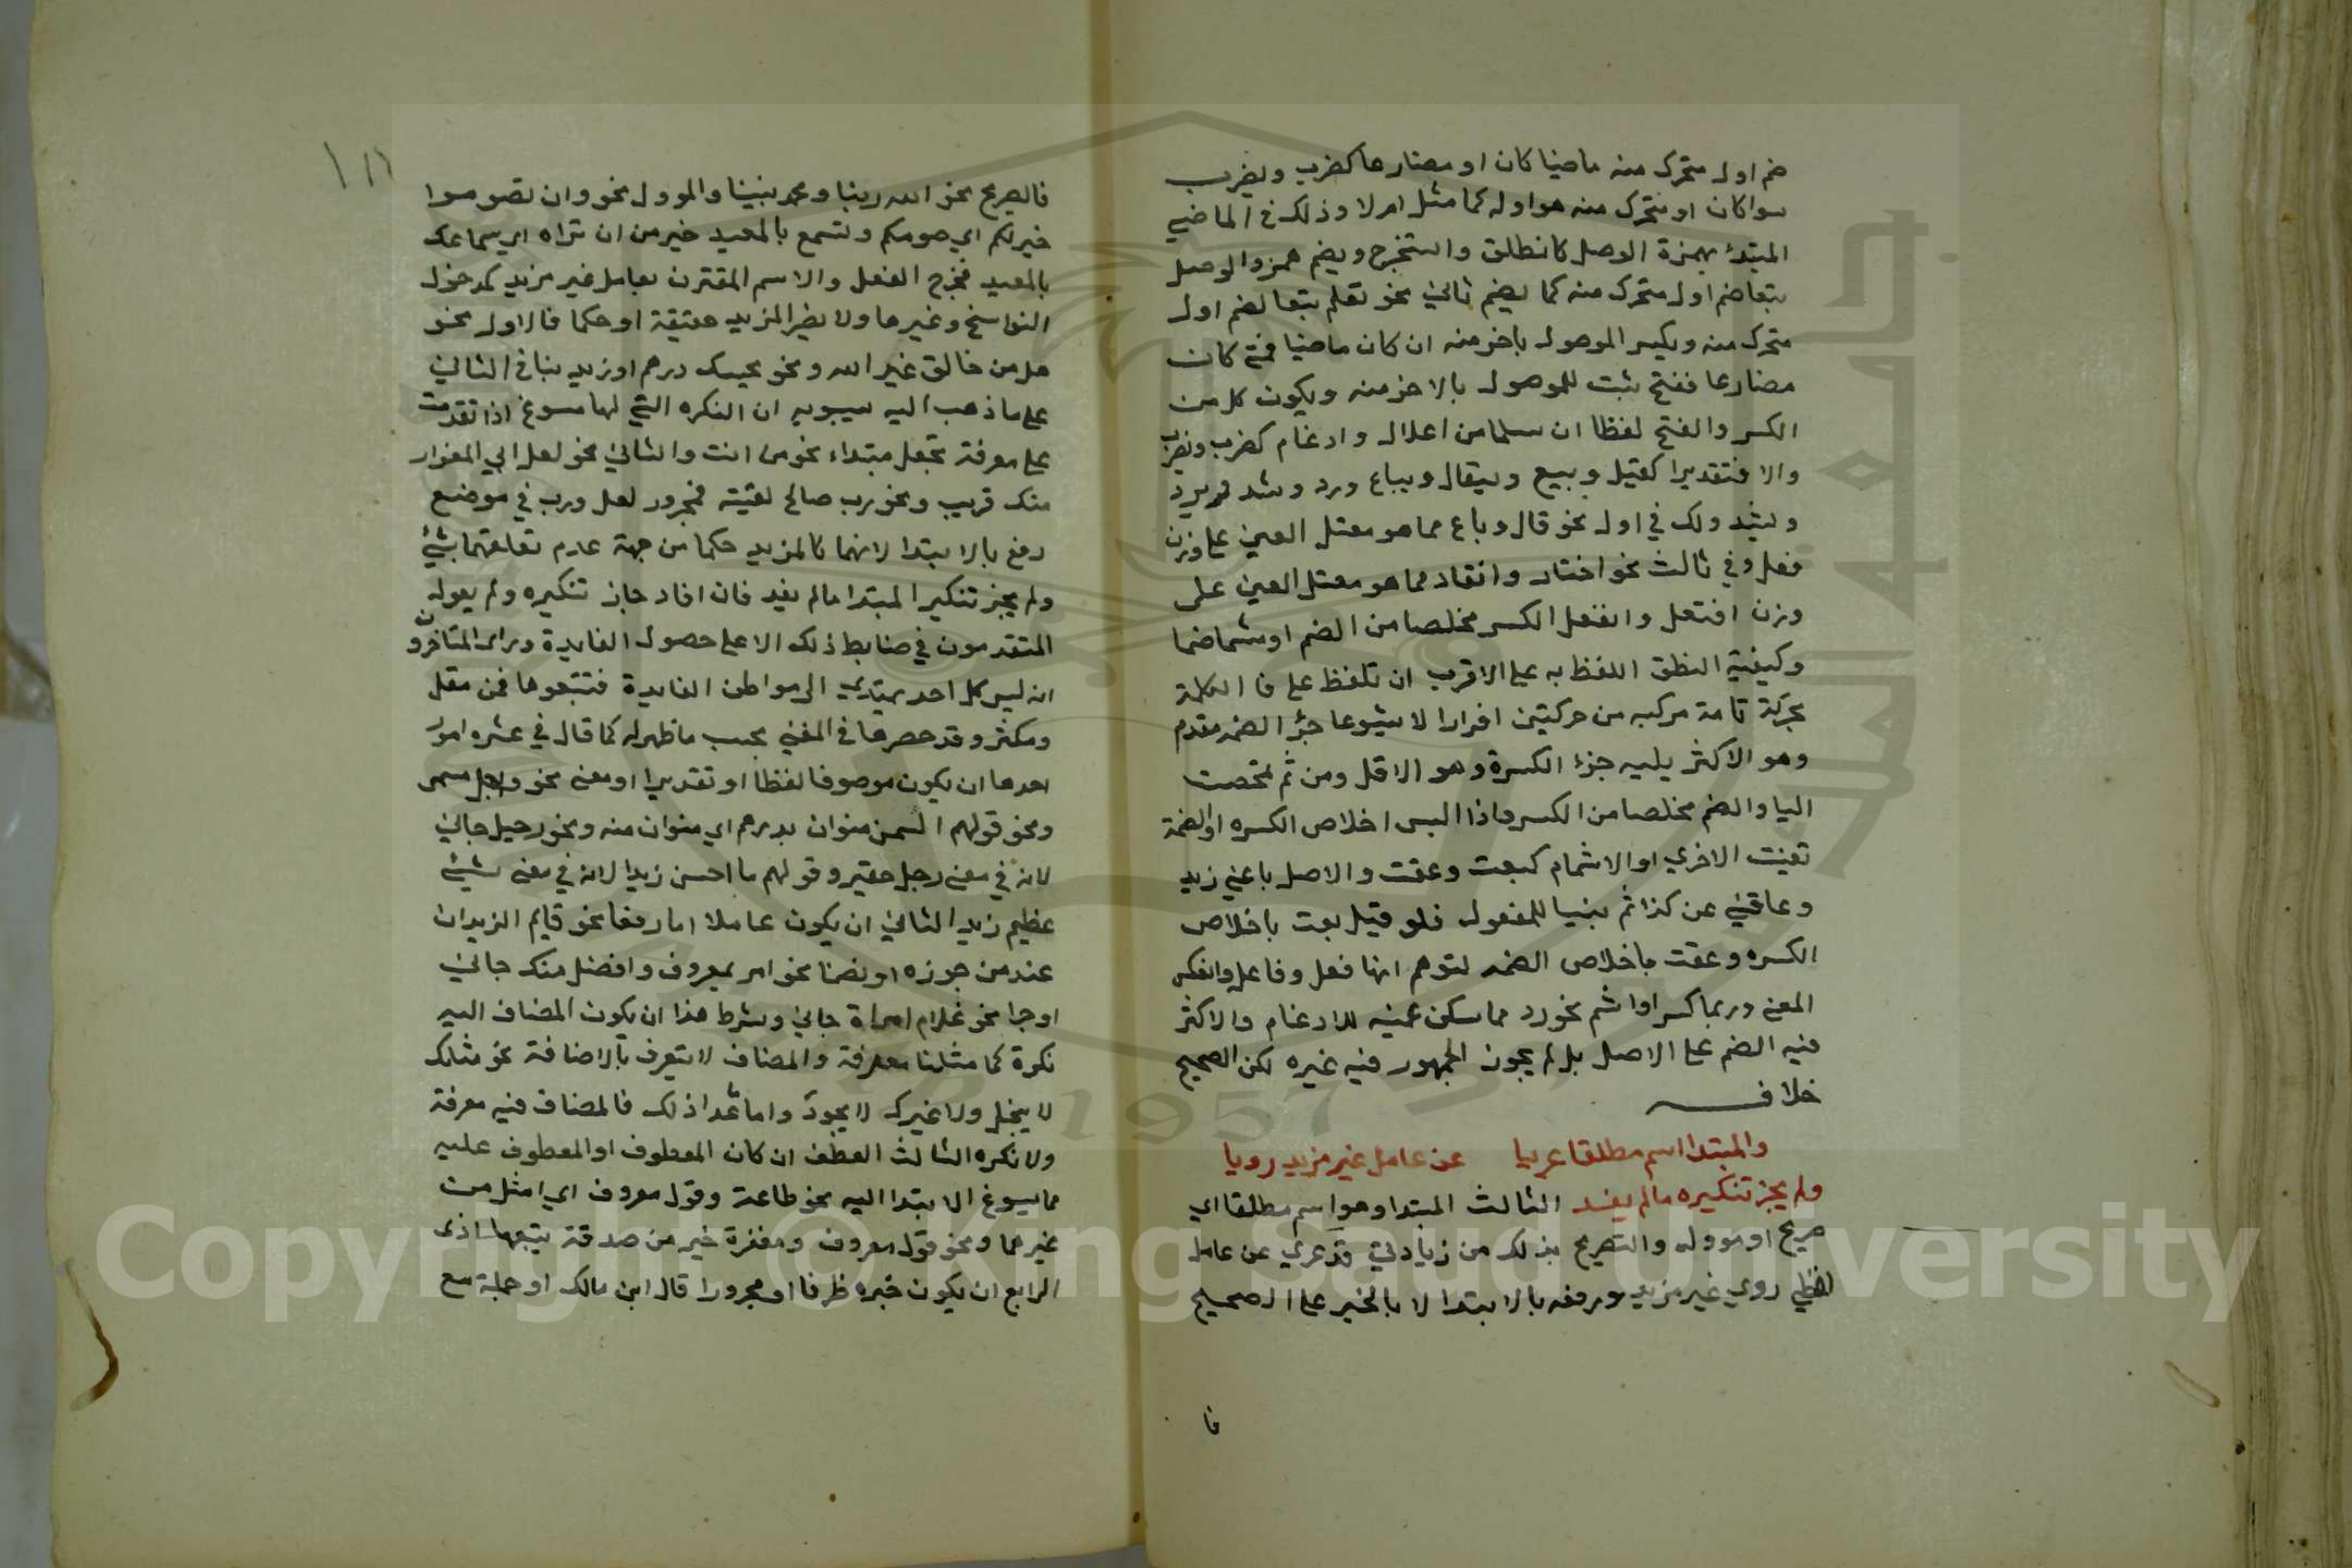 ضم اول متحرك منه ماضيا كان او مضارعا كضرب ويضرب
سوا كان او متحرك منه هو اوله كما مثل ام لا وذلك في الماضي
المبتدئ بهمزة الوصل كانطلق واستخرج ويضم همزو الوصل
بتعا ضم اول متحرك منه كما يضم ثاني نحو تعلم بتعا لضم اول
متحرك منه ويكسر الموصول باخر منه ان كان ماضيا فمتى كان
مضارعا ففتح ثبت للموصول بالاخر منه ويكون كل من
الكسر والفتح لفظا ان سلما من اعلال وادغام كضرب ويضرب
والا فتقديرا كقيل وبيع ويقال ويباع ورد وشد ويرد
ويشد ولك في اول نحو قال وباع مما هو معتل العين على وزن
فعل وفي ثالث نحو اختار وانقاد مما هو معتل العين على
وزن افتعل وانفعل الكسر مخلصا من الضم او مشما ضما
وكيفية النطق اللفظ به على الاقرب ان تلفظ على فا الكلمة
بحركة تامة مركبه من حركتين افرارا لا شيوعا جزء الضمه مقدم
وهو الاكثر يليه جزء الكسرة وهو الاقل ومن ثم تمحضت
اليا والضم مخلصا من الكسر فاذا البس اخلاص الكسره او الضمة
تعينت الاخري او الاشمام كبعت وعقت والاصل باعني زيد
وعاقني عن كذا ثم بنيا للمفعول فلو قيل بعت باخلاص
الكسره وعقت باخلاص الضمه لتوهم انها فعل وفاعل وانعكس
المعنى وربما كسر او اشم نحو رد مما سكن عينه للادغام والاكثر
فيه الضم على الاصل بل لم يجوز الجمهور فيه غيره لكن الصحيح
خلافه
والمبتدا اسم مطلقا عريا عن عامل غير مزيد رويا
ولم يجز تنكيره مالم يفد الثالث المبتدا وهو اسم مطلقا اي
صريح او موول والتصريح بذلك من زيادتي قد عري عن عامل
لفظي روي غير مزيد ورفعه بالابتدا لا بالخبر على الصحيح
فا
١١١
فالصريح نحو الله ربنا ومحمد نبينا والموول نحو وان تصوموا
خير لكم اي صومكم وتسمع بالمعيد خير من ان تراه اي سماعك
بالمعيد فخرج الفعل والاسم المقترن بعامل غير مزيد كمدخول
النواسخ وغيرها ولا يضر المزيد حقيقة او حكما فالاول نحو
هل من خالق غير الله ونحو بحسبك درهم او زيد بنا في الثاني
على ما ذهب اليه سيبويه ان النكره التي لها مسوغ اذا تقدمت
على معرفة تجعل مبتداء نحو من انت والثاني نحو لعل ابي المغوار
منك قريب ونحو رب صالح لقيته فمجرور لعل ورب في موضع
رفع بالابتدا لانهما كالمزيد حكما من جهة عدم تعلقهما بشئ
ولم يجز تنكير المبتدا مالم يفد فان افاد جاز تنكيره ولم يعول
المتقدمون في ضابط ذلك الا على حصول الفايدة وراى المتاخرون
انه ليس كل احد يهتدي الى مواطن الفايدة فتتبعوها فمن مقل
ومكثر وقد حصرها في المغني بحسب ما ظهر له كما قال في عشره امور
احدها ان يكون موصوفا لفظا او تقديرا او معنى نحو واجل مسمى
ونحو قولهم السمن منوان بدرهم اي منوان منه ونحو رجيل جاني
لانه في معنى رجل حقير وقولهم ما احسن زيدا لانه في معنى شيئ
عظيم زيد الثاني ان يكون عاملا اما رفعا نحو قايم الزيدان
عند من جوزه او نصبا نحو امر بمعروف وافضل منك جاني
او جرا نحو غلام امراة جاني وشرط هذا ان يكون المضاف اليه
نكرة كما مثلنا معرفة والمضاف لا يتعرف بالاضافة نحو مثلك
لا يبخل ولا غيرك لا يجود واما عدا ذلك فالمضاف فيه معرفة
ولا نكره الثالث العطف ان كان المعطوف او المعطوف عليه
مما يسوغ الابتدا اليه نحو طاعة وقول معروف اي امثل من
غيرهما ونحو قول معروف ومغفرة خير من صدقة يتبعها اذى
الرابع ان يكون خبره ظرفا او مجرورا قال ابن مالك او جملة مع
Copyright © King Saud University
1957